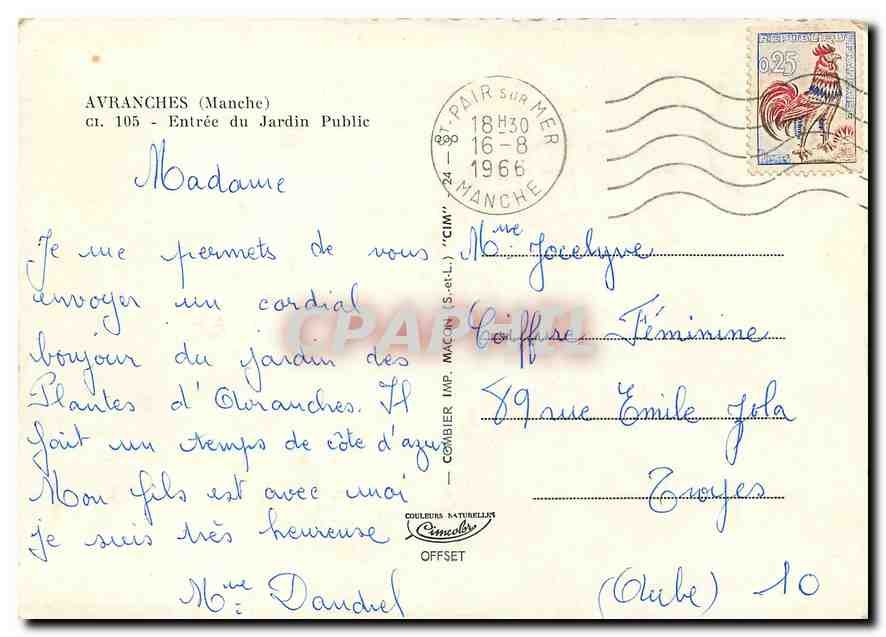 AVRANCHES (Manche)
CI. 105 - Entrée du Jardin Public
Madame
Je me permets de vous
envoyer un cordial
bonjour du jardin des
Plantes d'Avranches. Il
fait un temps de côte d'azur
Mon fils est avec moi
je suis très heureuse
Mme Dandrel
24 — COMBIER IMP. MACON (S.-et-L.) "CIM"
COULEURS NATURELLES
Cimcolor
OFFSET
ST-PAIR SUR MER
18H30
16-8
1966
MANCHE
0,25
Mme Jocelyne
Coiffure Féminine
89 rue Emile Zola
Troyes
(Aube) 10
CPAPHIL